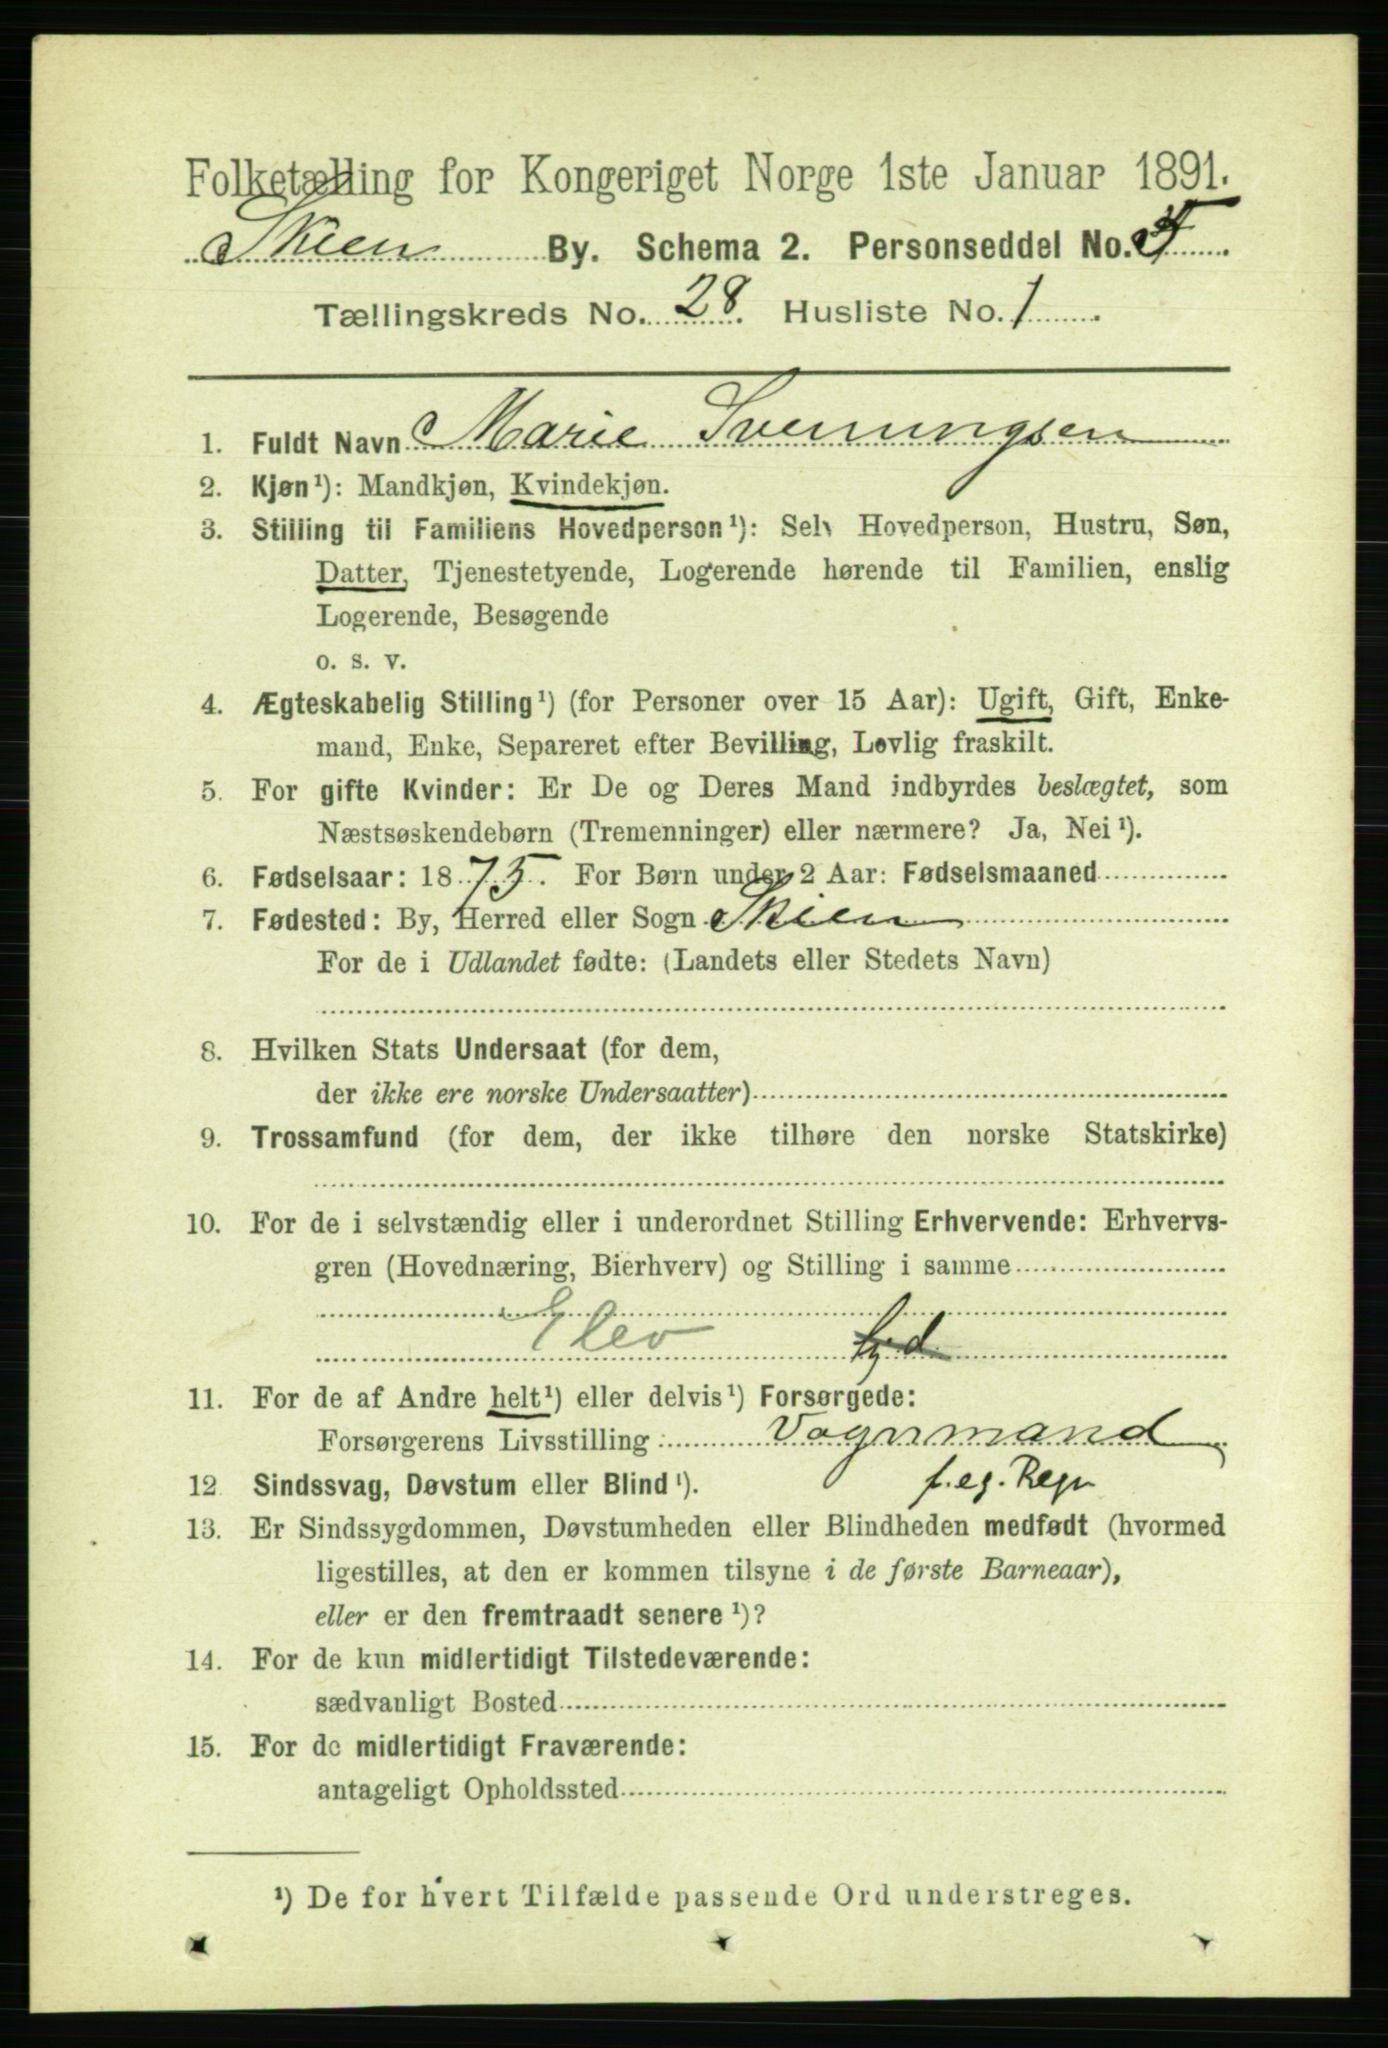 Folketælling for Kongeriget Norge 1ste Januar 1891.
Skien By. Schema 2. Personseddel No. 5
Tællingskreds No. 28. Husliste No. 1
1. Fuldt Navn Marie Svenningsen
2. Kjøn¹): Mandkjøn, Kvindekjøn.
3. Stilling til Familiens Hovedperson¹): Selv Hovedperson, Hustru, Søn,
Datter, Tjenestetyende, Logerende hørende til Familien, enslig
Logerende, Besøgende
o. s. v.
4. Ægteskabelig Stilling¹) (for Personer over 15 Aar): Ugift, Gift, Enke-
mand, Enke, Separeret efter Bevilling, Lovlig fraskilt.
5. For gifte Kvinder: Er De og Deres Mand indbyrdes beslægtet, som
Næstsøskendebørn (Tremenninger) eller nærmere? Ja, Nei¹).
6. Fødselsaar: 1875. For Børn under 2 Aar: Fødselsmaaned
7. Fødested: By, Herred eller Sogn Skien
For de i Udlandet fødte: (Landets eller Stedets Navn)
8. Hvilken Stats Undersaat (for dem,
der ikke ere norske Undersaatter)
9. Trossamfund (for dem, der ikke tilhøre den norske Statskirke)
10. For de i selvstændig eller i underordnet Stilling Erhvervende: Erhvervs-
gren (Hovednæring, Bierhverv) og Stilling i samme
Elev
11. For de af Andre helt¹) eller delvis¹) Forsørgede:
Forsørgerens Livsstilling: Vognmand
f. eg. Regn
12. Sindssvag, Døvstum eller Blind¹).
13. Er Sindssygdommen, Døvstumheden eller Blindheden medfødt (hvormed
ligestilles, at den er kommen tilsyne i de første Barneaar),
eller er den fremtraadt senere¹)?
14. For de kun midlertidigt Tilstedeværende:
sædvanligt Bosted
15. For de midlertidigt Fraværende:
antageligt Opholdssted
¹) De for hvert Tilfælde passende Ord understreges.